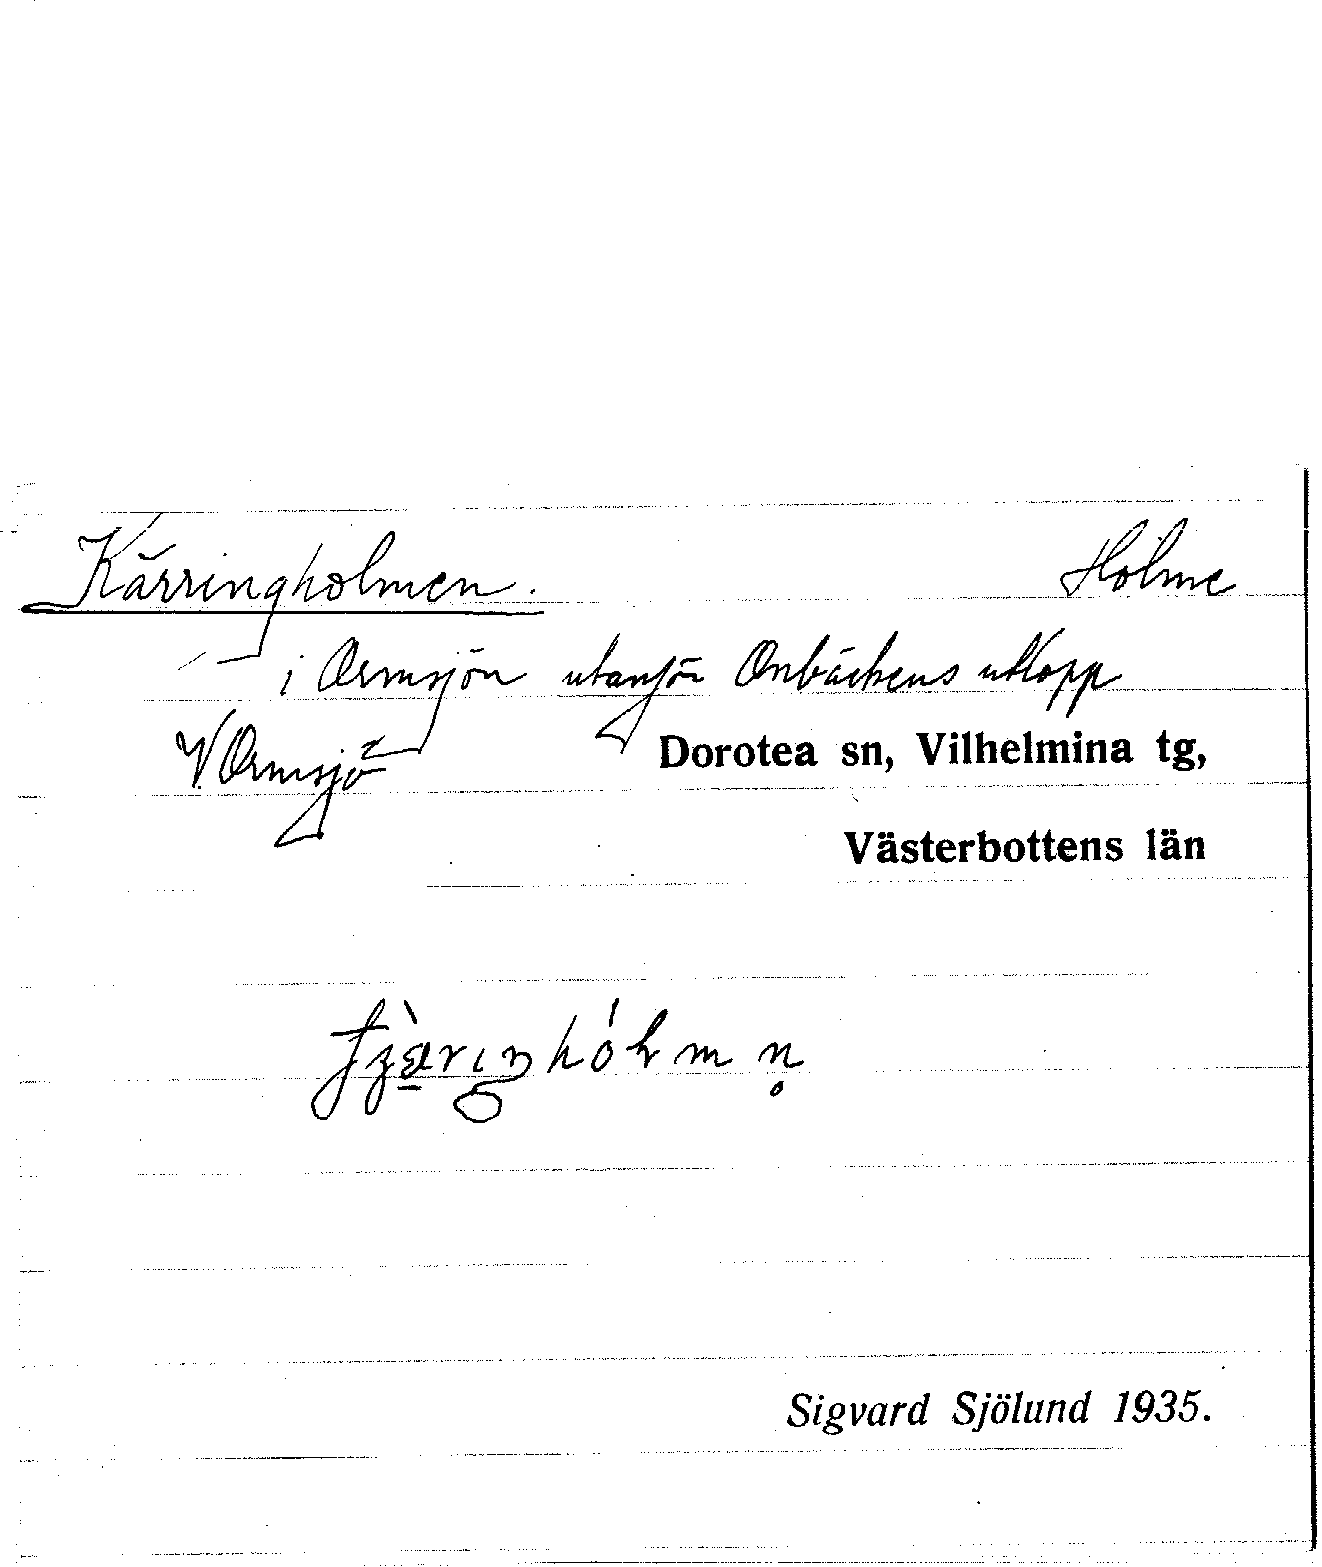 Kärringholmen. Holme
i Ormsjön utanför Onbäckens utlopp
V. Ormsjö Dorotea sn, Vilhelmina tg,
Västerbottens län
Sigvard Sjölund 1935.